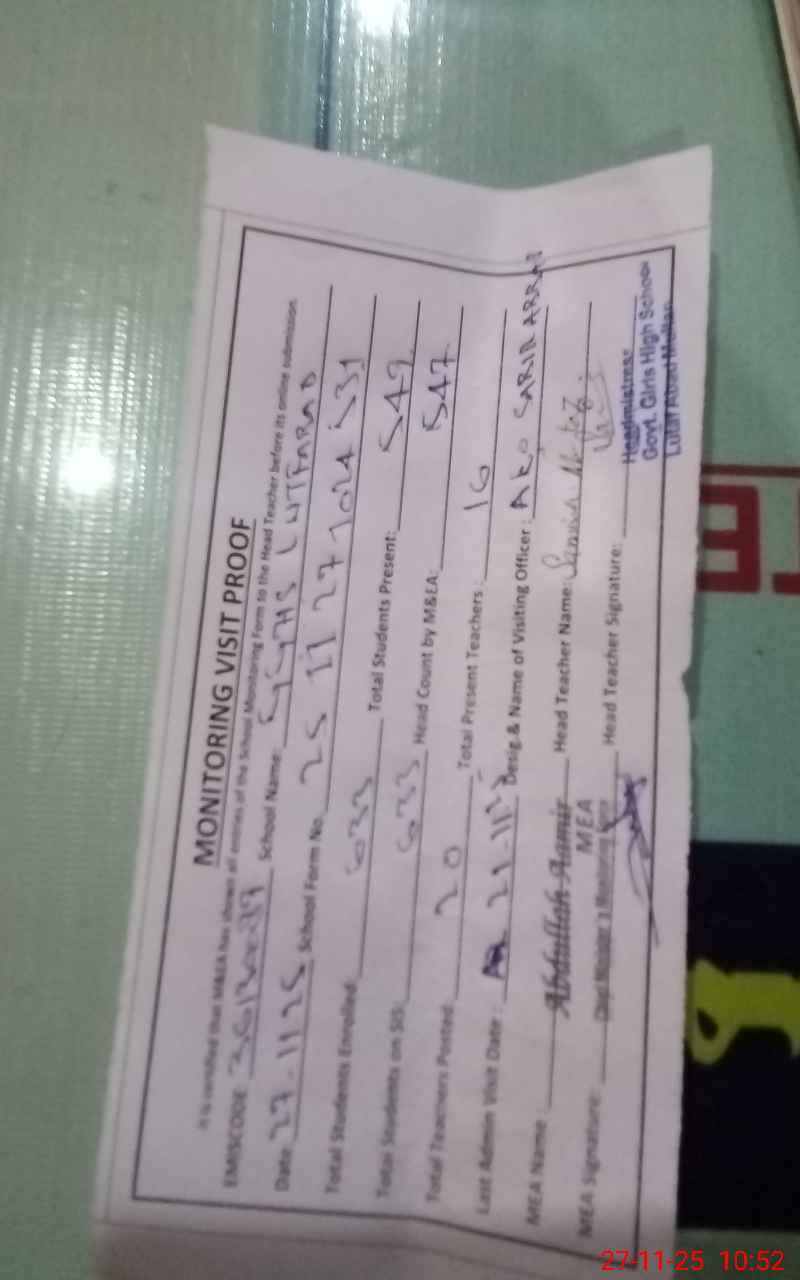 MONITORING VISIT PROOF
It is certified that M&EA has shown all entries of the School Monitoring Form to the Head Teacher before its online submission.
EMISCODE School Name: GGHS LUTFABAD
Date 27-11 25 School Form No.
Total Students Enrolled: 633 Total Students Present: 549
Total Students on SIS: 633 Head Count by M&EA: 547
Total Teachers Posted: 20 Total Present Teachers: 16
Last Admin Visit Date: Desig & Name of Visiting Officer:
MEA Name: Abdullah Aamir Head Teacher Name:
MEA
MEA Signature: Chief Minister's Monitoring Force Head Teacher Signature:
Headmistress
Govt. Girls High School
Lutaf Abad Multan
27-11-25 10:52